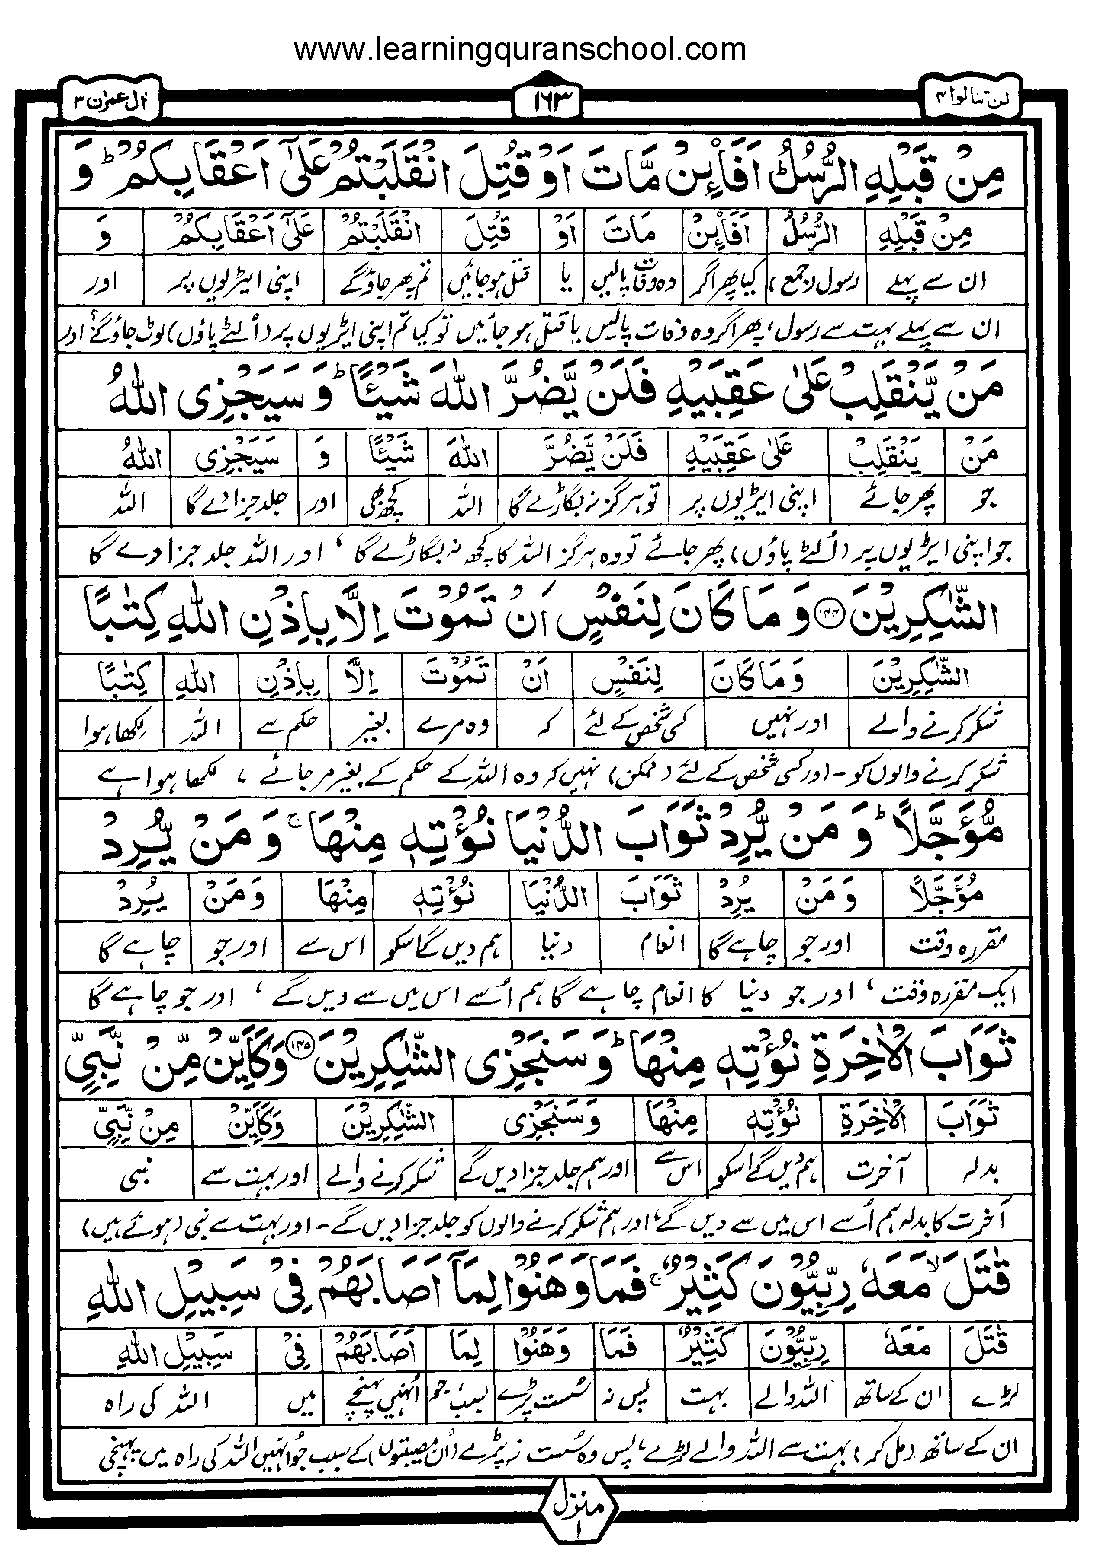 www.learningquranschool.com
لن تنالوا ۴
۱۶۳
اٰل عمرٰن ۳
مِنْ قَبْلِهِ الرُّسُلُ ؕ اَفَا۟ئِنْ مَّاتَ اَوْ قُتِلَ انْقَلَبْتُمْ عَلٰۤى اَعْقَابِكُمْ ؕ وَ
مِنْ قَبْلِهِ الرُّسُلُ اَفَا۟ئِنْ مَاتَ اَوْ قُتِلَ انْقَلَبْتُمْ عَلٰۤى اَعْقَابِكُمْ وَ
ان سے پہلے رسول (جمع) کیا پھر اگر وہ وفات پالیں یا قتل ہو جائیں تم پھر جاؤ گے اپنی ایڑیوں پر اور
ان سے پہلے بہت سے رسول، پھر اگر وہ وفات پالیں یا قتل ہو جائیں تو کیا تم اپنی ایڑیوں پر (اُلٹے پاؤں) لوٹ جاؤ گے؟ اور
مَنْ يَّنْقَلِبْ عَلٰى عَقِبَيْهِ فَلَنْ يَّضُرَّ اللّٰهَ شَيْئًا ؕ وَ سَيَجْزِى اللّٰهُ
مَنْ يَنْقَلِبْ عَلٰى عَقِبَيْهِ فَلَنْ يَّضُرَّ اللّٰهَ شَيْئًا وَ سَيَجْزِى اللّٰهُ
جو پھر جائے اپنی ایڑیوں پر تو ہرگز نہ بگاڑے گا اللہ کچھ بھی اور جلد جزا دے گا اللہ
جو اپنی ایڑیوں پر (اُلٹے پاؤں) پھر جائے تو وہ ہرگز اللہ کا کچھ نہ بگاڑے گا، اور اللہ جلد جزا دے گا
الشّٰكِرِيْنَ ۝۱۴۴ وَ مَا كَانَ لِنَفْسٍ اَنْ تَمُوْتَ اِلَّا بِاِذْنِ اللّٰهِ كِتٰبًا
الشّٰكِرِيْنَ وَمَا كَانَ لِنَفْسٍ اَنْ تَمُوْتَ اِلَّا بِاِذْنِ اللّٰهِ كِتٰبًا
شکر کرنے والے اور نہیں کسی شخص کے لئے کہ وہ مرے بغیر حکم سے اللہ لکھا ہوا
شکر کرنے والوں کو۔ اور کسی شخص کے لئے (ممکن) نہیں کہ وہ اللہ کے حکم کے بغیر مر جائے، لکھا ہوا ہے
مُّؤَجَّلًا ؕ وَ مَنْ يُّرِدْ ثَوَابَ الدُّنْيَا نُؤْتِهٖ مِنْهَا ۚ وَ مَنْ يُّرِدْ
مُؤَجَّلًا وَمَنْ يُرِدْ ثَوَابَ الدُّنْيَا نُؤْتِهٖ مِنْهَا وَمَنْ يُرِدْ
مقررہ وقت اور جو چاہے گا انعام دنیا ہم دیں گے اسکو اس سے اور جو چاہے گا
ایک مقررہ وقت، اور جو دنیا کا انعام چاہے گا ہم اُسے اس میں سے دیں گے، اور جو چاہے گا
ثَوَابَ الْاٰخِرَةِ نُؤْتِهٖ مِنْهَا ؕ وَ سَنَجْزِى الشّٰكِرِيْنَ ۝۱۴۵ وَكَاَيِّنْ مِّنْ نَّبِىٍّ
ثَوَابَ الْاٰخِرَةِ نُؤْتِهٖ مِنْهَا وَسَنَجْزِى الشّٰكِرِيْنَ وَكَاَيِّنْ مِنْ نَّبِىٍّ
بدلہ آخرت ہم دیں گے اسکو اس سے اور ہم جلد جزا دیں گے شکر کرنے والے اور بہت سے نبی
آخرت کا بدلہ ہم اُسے اس میں سے دیں گے، اور ہم شکر کرنے والوں کو جلد جزا دیں گے۔ اور بہت سے نبی (ہوئے ہیں)
قٰتَلَ ۙ مَعَهٗ رِبِّيُّوْنَ كَثِيْرٌ ۚ فَمَا وَهَنُوْا لِمَاۤ اَصَابَهُمْ فِىْ سَبِيْلِ اللّٰهِ
قٰتَلَ مَعَهٗ رِبِّيُّوْنَ كَثِيْرٌ فَمَا وَهَنُوْا لِمَا اَصَابَهُمْ فِىْ سَبِيْلِ اللّٰهِ
لڑے ان کے ساتھ اللہ والے بہت پس نہ سست پڑے بسبب جو اُنہیں پہنچے میں اللہ کی راہ
ان کے ساتھ (مل کر) بہت سے اللہ والے لڑے، پس وہ سست نہ پڑے (اُن مصیبتوں) کے سبب جو اُنہیں اللہ کی راہ میں پہنچی
منزل ۱